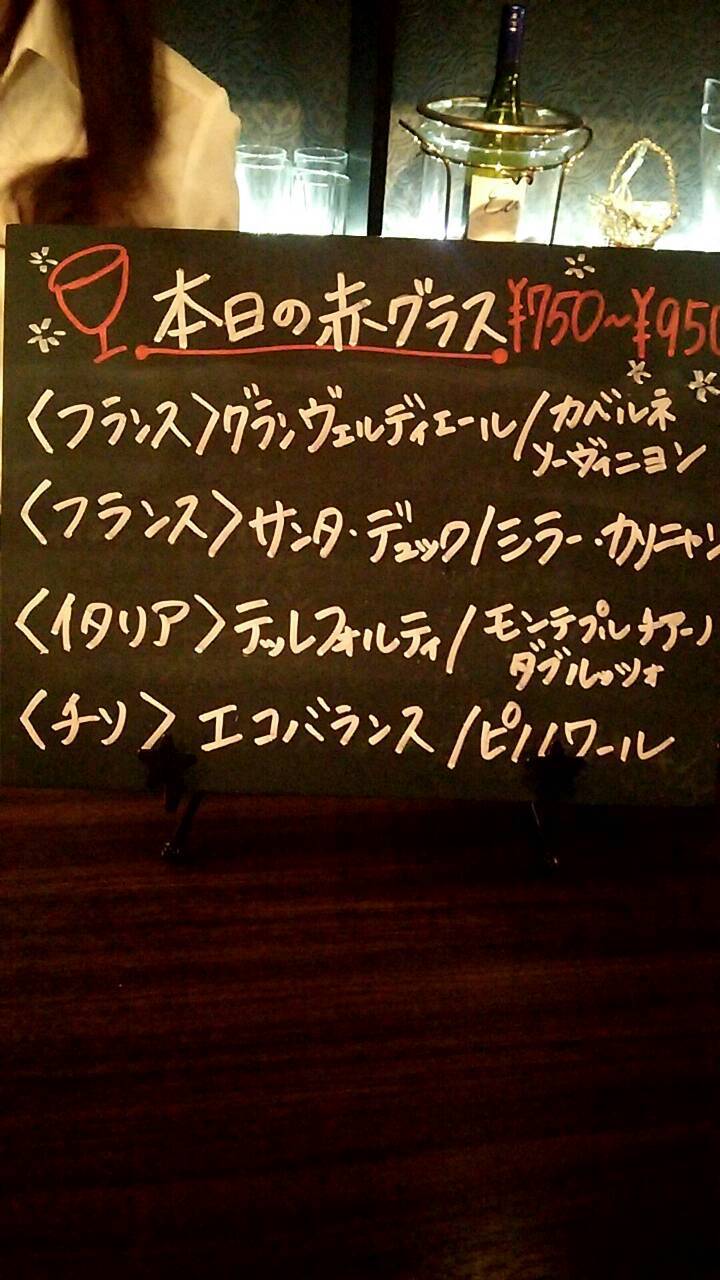 本日の赤グラス ¥750~¥950
〈フランス〉グランヴェルディエール/カベルネ
ソーヴィニヨン
〈フランス〉サンタ・デュック/シラー・カリニャン
〈イタリア〉テッレフォルティ/モンテプルチアーノ
ダブルッツォ
〈チリ〉エコバランス/ピノノワール